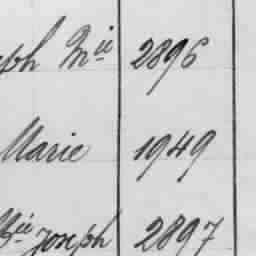 eph M^ie 2896
Marie 1949
M^ie Joseph 2897